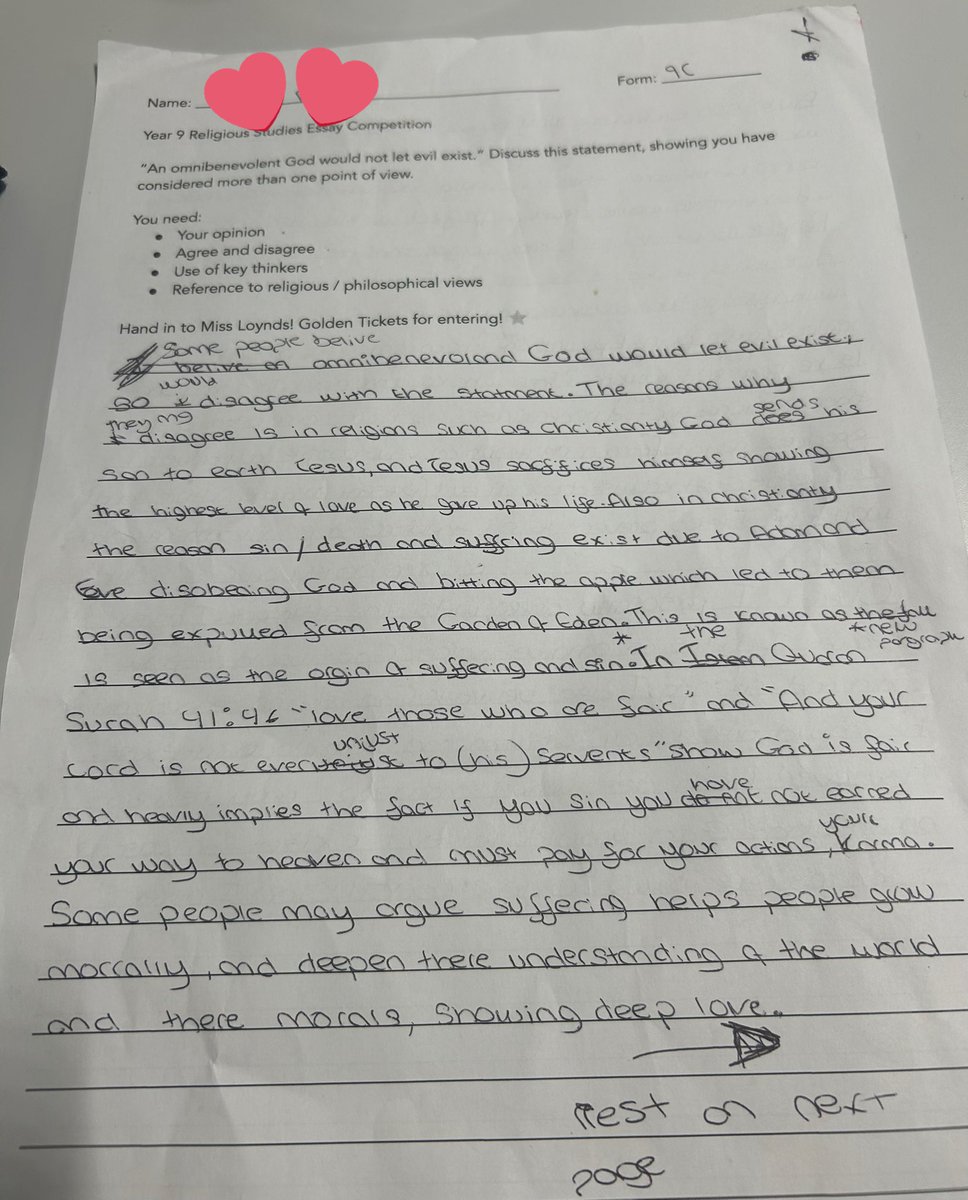 Name:
Form: 9C
Year 9 Religious Studies Essay Competition
"An omnibenevolent God would not let evil exist." Discuss this statement, showing you have
considered more than one point of view.
You need:
• Your opinion
• Agree and disagree
• Use of key thinkers
• Reference to religious / philosophical views
Hand in to Miss Loynds! Golden Tickets for entering!
Some people belive
belive an omnibenevoland God would let evil exist,
would
so I disagree with the statment. The reasons why
they my sends
I disagree is in religions such as Christianty God does his
son to earth Jesus, and Jesus sacffices himself showing
the highest level of love as he gave up his life. Also in Christionty
the reason sin / death and suffring exist due to Adam and
Eve disobeaing God and bitting the apple which led to them
being expulled from the Garden of Eden. This is known as the fall
* the * new
paragraph
is seen as the orgin of suffering and sin. In Islam Quaran
Surah 41:46 "love those who are fair" and "And your
unjust
Lord is not ever to (his) servents" show God is fair
have
and heavily implies the fact if you sin you not earred
your
your way to heaven and must pay for your actions, Karma.
Some people may argue suffering helps people grow
morrally, and deepen there understanding of the world
and there morals, showing deep love.
Rest on next
page